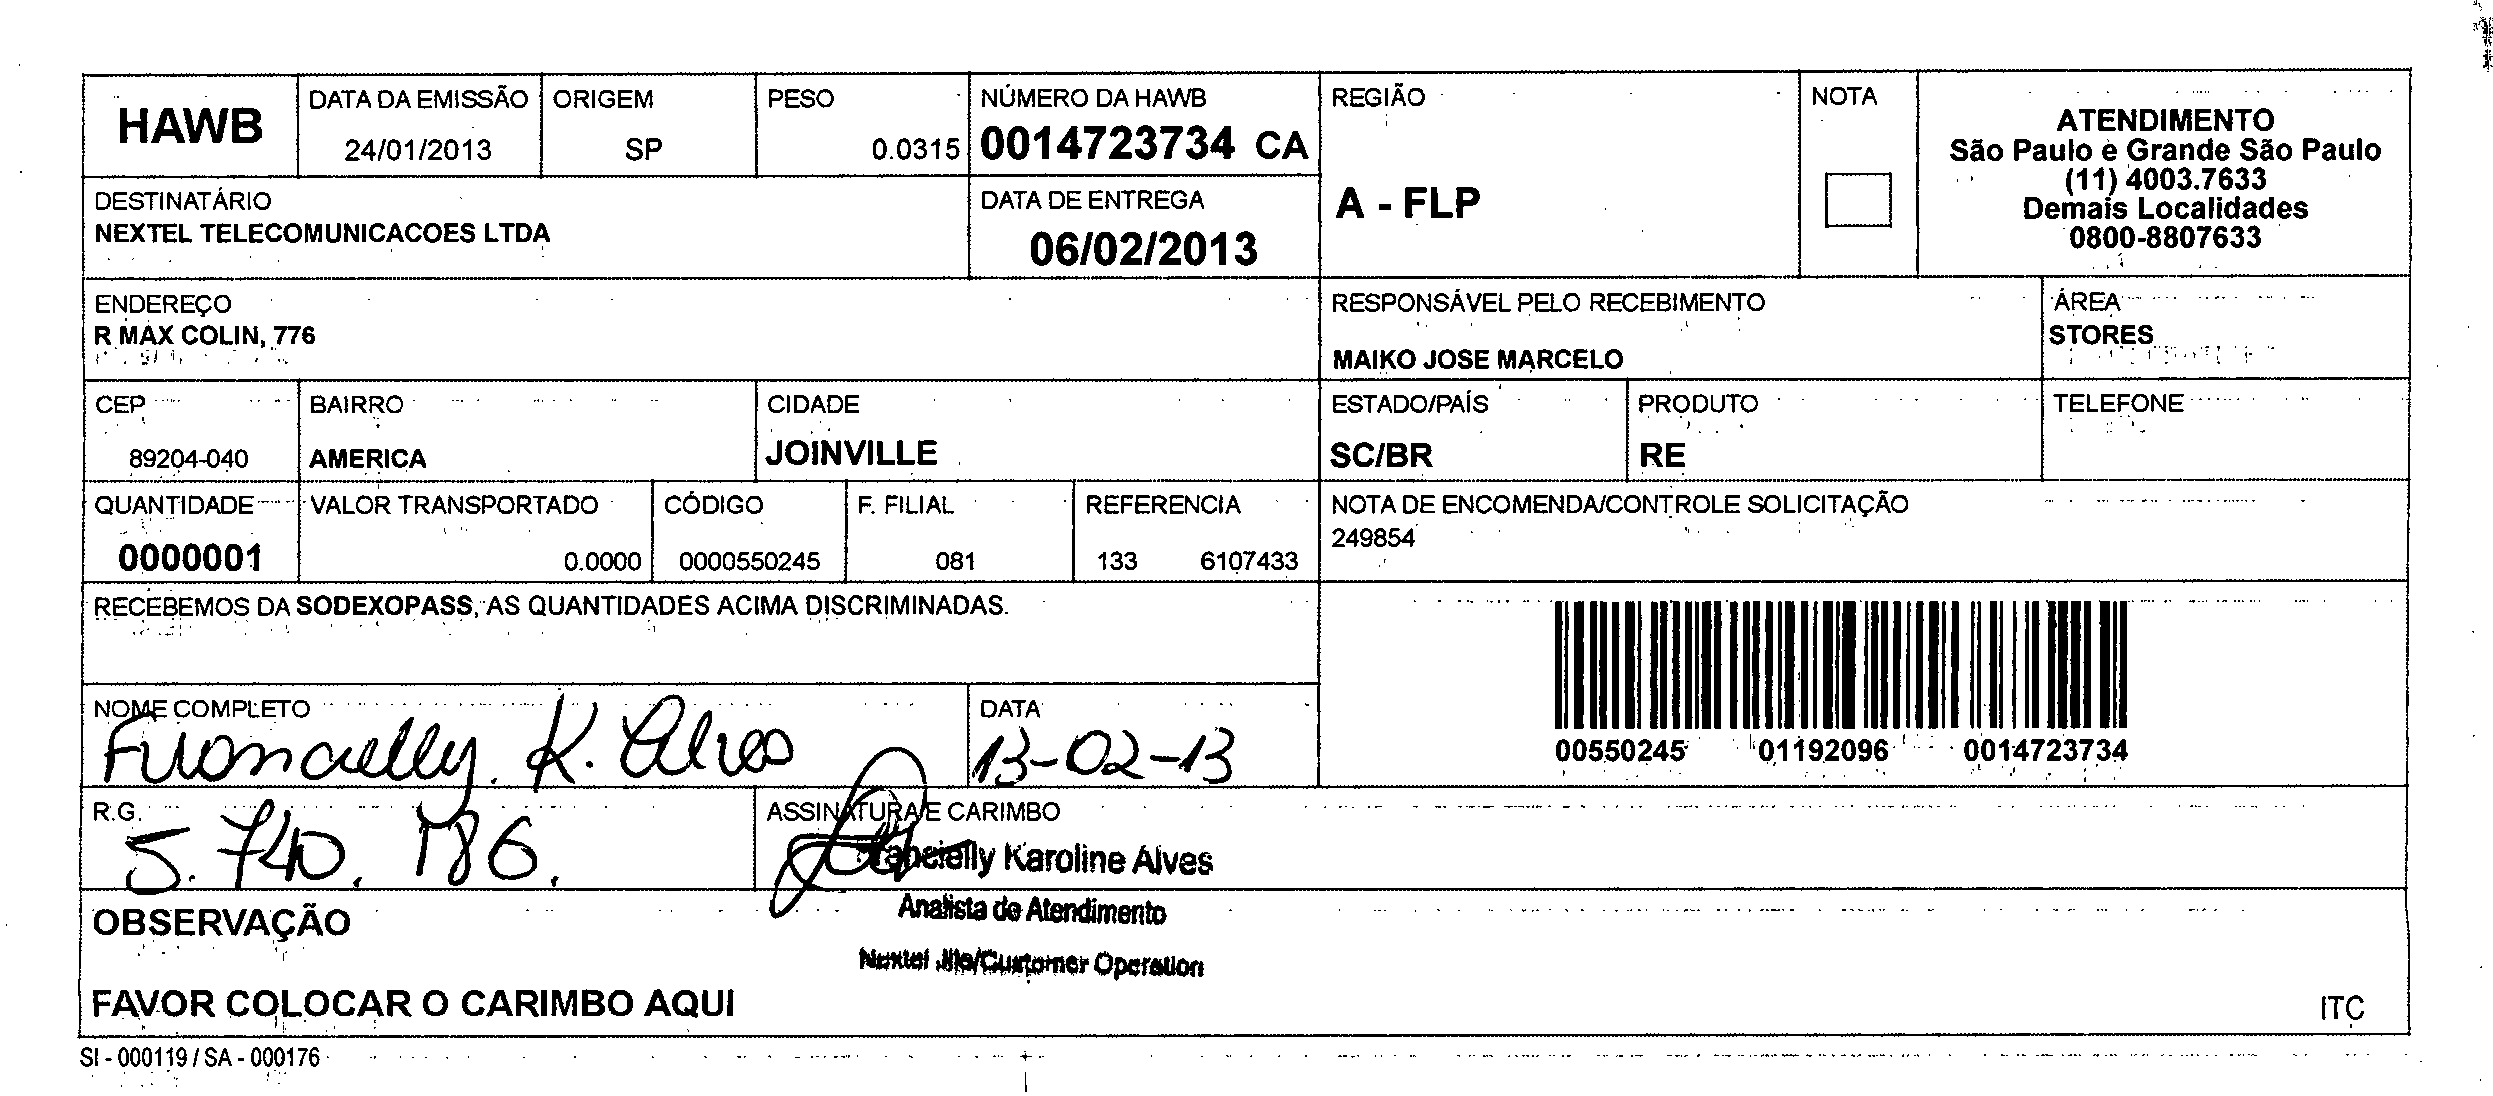 HAWB
DATA DA EMISSÃO
24/01/2013
ORIGEM
SP
PESO
0.0315
NÚMERO DA HAWB
0014723734 CA
REGIÃO
A - FLP
NOTA
ATENDIMENTO
São Paulo e Grande São Paulo
(11) 4003.7633
Demais Localidades
0800-8807633
DESTINATÁRIO
NEXTEL TELECOMUNICACOES LTDA
DATA DE ENTREGA
06/02/2013
ENDEREÇO
R MAX COLIN, 776
RESPONSÁVEL PELO RECEBIMENTO
MAIKO JOSE MARCELO
ÁREA
STORES
CEP
89204-040
BAIRRO
AMERICA
CIDADE
JOINVILLE
ESTADO/PAÍS
SC/BR
PRODUTO
RE
TELEFONE
QUANTIDADE
0000001
VALOR TRANSPORTADO
0.0000
CÓDIGO
0000550245
F. FILIAL
081
REFERENCIA
133 6107433
NOTA DE ENCOMENDA/CONTROLE SOLICITAÇÃO
249854
RECEBEMOS DA SODEXOPASS, AS QUANTIDADES ACIMA DISCRIMINADAS.
00550245 01192096 0014723734
NOME COMPLETO
Francielly K. Alves
DATA
13-02-13
R.G.
5.740.786.
ASSINATURA E CARIMBO
Francielly Karoline Alves
Analista de Atendimento
Nextel Jlle/Customer Operation
OBSERVAÇÃO
FAVOR COLOCAR O CARIMBO AQUI
ITC
SI - 000119 / SA - 000176